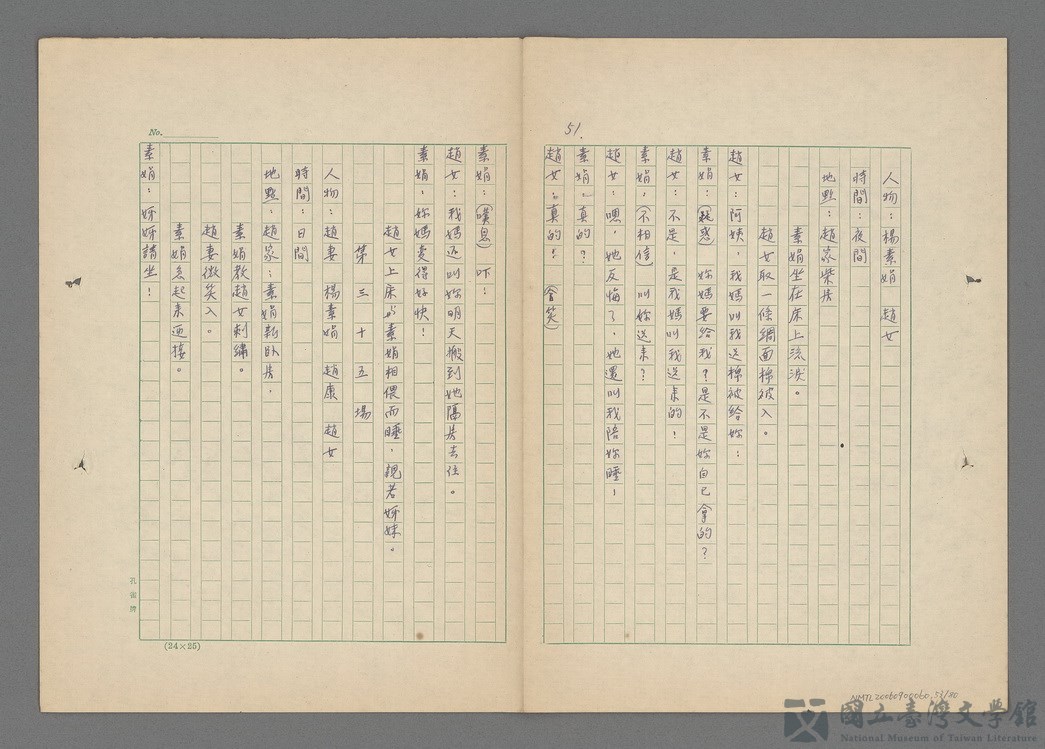 51.
人物：楊素娟　趙女
時間：夜間
地點：趙家柴房
素娟坐在床上流淚。
趙女取一條綢面棉被入。
趙女：阿姨，我媽叫我送棉被給妳：
素娟：(疑惑)　妳媽要給我？是不是妳自己拿的？
趙女：不是，是我媽叫我送來的！
素娟：(不相信)　叫妳送來？
趙女：嗯，她反悔了，她還叫我陪妳睡，
素娟：真的？
趙女：真的！　(含笑)
No.
素娟：(嘆息)　吓：
趙女：我媽還叫妳明天搬到她隔房去住。
素娟：妳媽變得好快！
趙女上床与素娟相偎而睡，親若姊妹。
第三十五場
人物：趙妻　楊素娟　趙康　趙女
時間：日間
地點：趙家：素娟新臥房，
素娟教趙女刺繡。
趙妻微笑入。
素娟急起來迎接。
素娟：姊姊請坐！
孔雀牌
(24×25)
NMTL20060900060.53/80
國立臺灣文學館
National Museum of Taiwan Literature